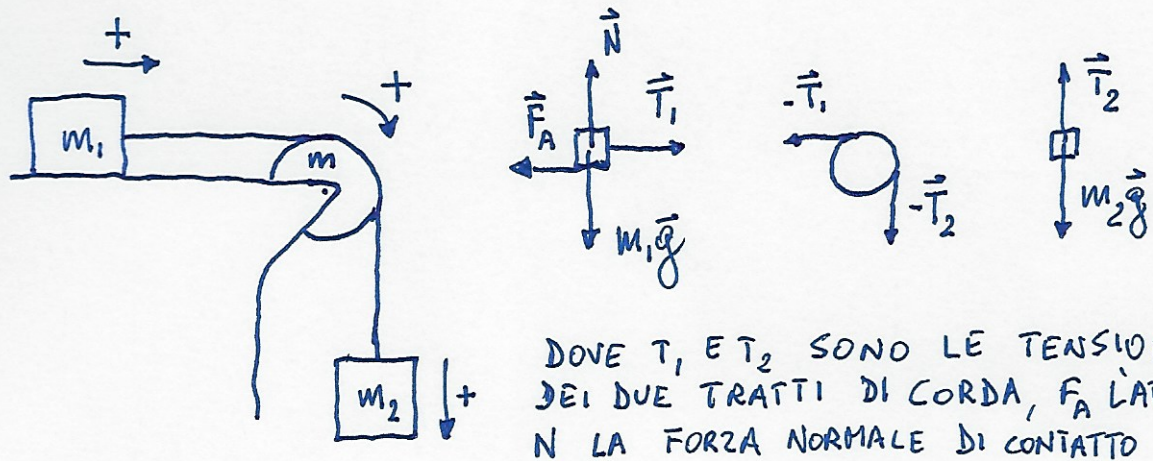 +
+
m₁
m
m₂
+
N⃗
F⃗_A
T⃗₁
m₁g⃗
-T⃗₁
-T⃗₂
T⃗₂
m₂g⃗
DOVE T₁ E T₂ SONO LE TENSIO
DEI DUE TRATTI DI CORDA, F_A L'AT
N LA FORZA NORMALE DI CONTATTO